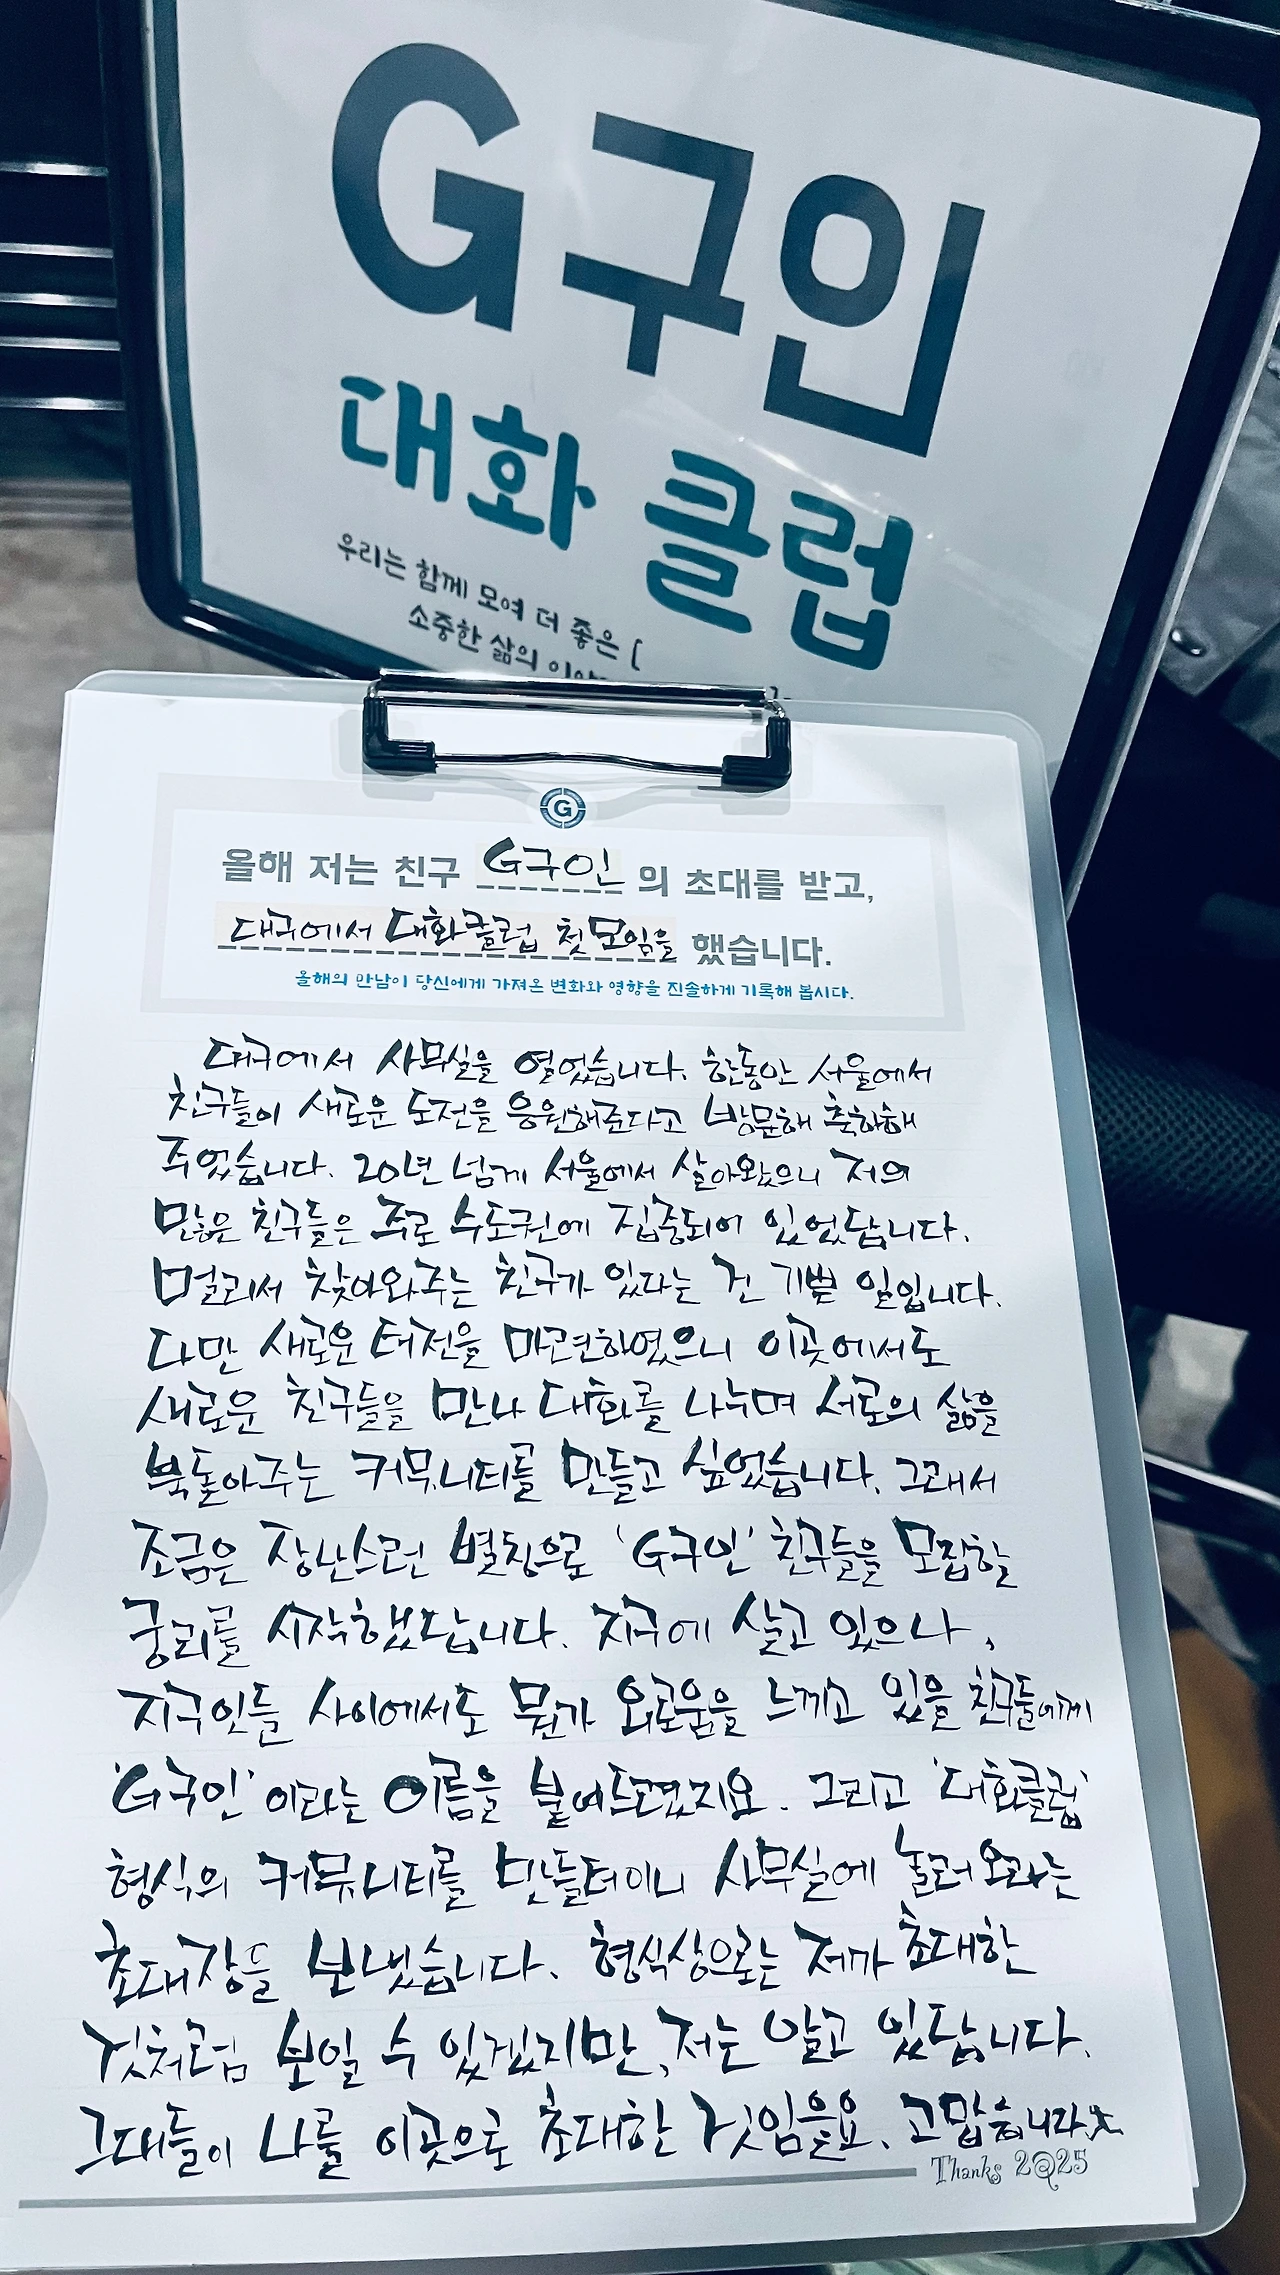 G구인
대화 클럽
우리는 함께 모여 더 좋은 [
소중한 삶의
G
올해 저는 친구 G구인 의 초대를 받고,
대구에서 대화클럽 첫모임을 했습니다.
올해의 만남이 당신에게 가져온 변화와 영향을 진솔하게 기록해 봅시다.
대구에서 사무실을 열었습니다. 한동안 서울에서
친구들이 새로운 도전을 응원해준다고 방문해 축하해
주었습니다. 20년 넘게 서울에서 살아왔으니 저의
많은 친구들은 주로 수도권에 집중되어 있었답니다.
멀리서 찾아와주는 친구가 있다는 건 기쁜 일입니다.
다만 새로운 터전을 마련하였으니 이곳에서도
새로운 친구들을 만나 대화를 나누며 서로의 삶을
북돋아주는 커뮤니티를 만들고 싶었습니다. 그래서
조금은 장난스런 별칭으로 'G구인' 친구들을 모집할
궁리를 시작했답니다. 지구에 살고 있으나,
지구인들 사이에서도 뭔가 외로움을 느끼고 있을 친구들에게
'G구인'이라는 이름을 붙여드렸지요. 그리고 '대화클럽'
형식의 커뮤니티를 만들터이니 사무실에 놀러오라는
초대장을 보냈습니다. 형식상으로는 제가 초대한
것처럼 보일 수 있겠지만, 저는 알고 있답니다.
그대들이 나를 이곳으로 초대한 것임을요. 고맙습니다.
Thanks 2@25